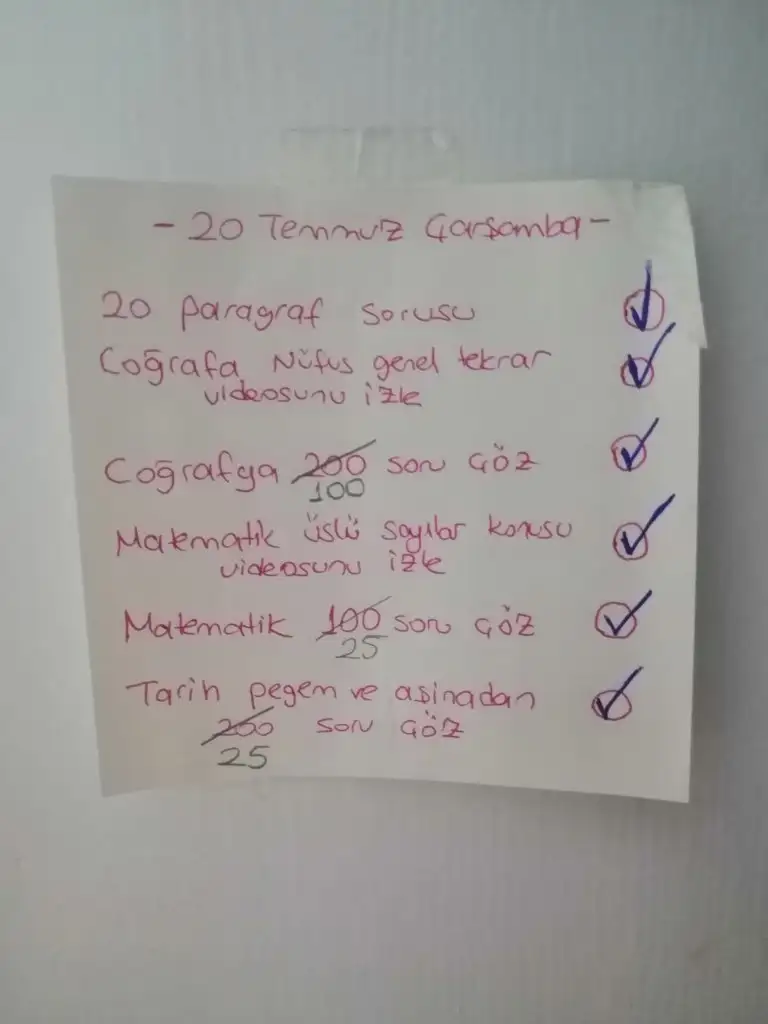 - 20 Temmuz Çarşamba -
20 paragraf sorusu
Coğrafa Nüfus genel tekrar
videosunu izle
Coğrafya 200 soru çöz
100
Matematik üslü sayılar konusu
videosunu izle
Matematik 100 soru çöz
25
Tarih pegem ve aşinadan
200 soru çöz
25